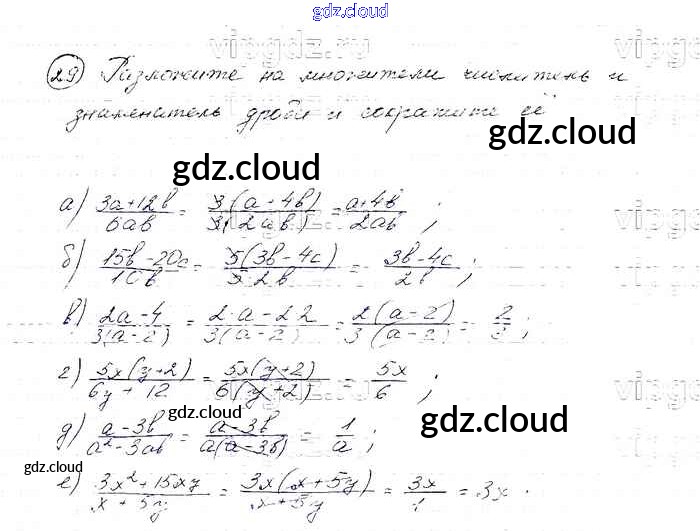 gdz.cloud
vipgdz.ru
29) Разложите на множители числитель и
знаменатель дроби и сократите её
gdz.cloud
gdz.cloud
а) 3a+12b / 6ab = 3(a+4b) / 3(2ab) = a+4b / 2ab ;
б) 15b-20c / 10b = 5(3b-4c) / 5·2b = 3b-4c / 2b ;
в) 2a-4 / 3(a-2) = 2·a-2·2 / 3(a-2) = 2(a-2) / 3(a-2) = 2 / 3 ;
г) 5x(y+2) / 6y+12 = 5x(y+2) / 6(y+2) = 5x / 6 ;
gdz.cloud
gdz.cloud
д) a-3b / a²-3ab = a-3b / a(a-3b) = 1 / a ;
gdz.cloud
е) 3x²+15xy / x+5y = 3x(x+5y) / x+5y = 3x / 1 = 3x .
gdz.cloud